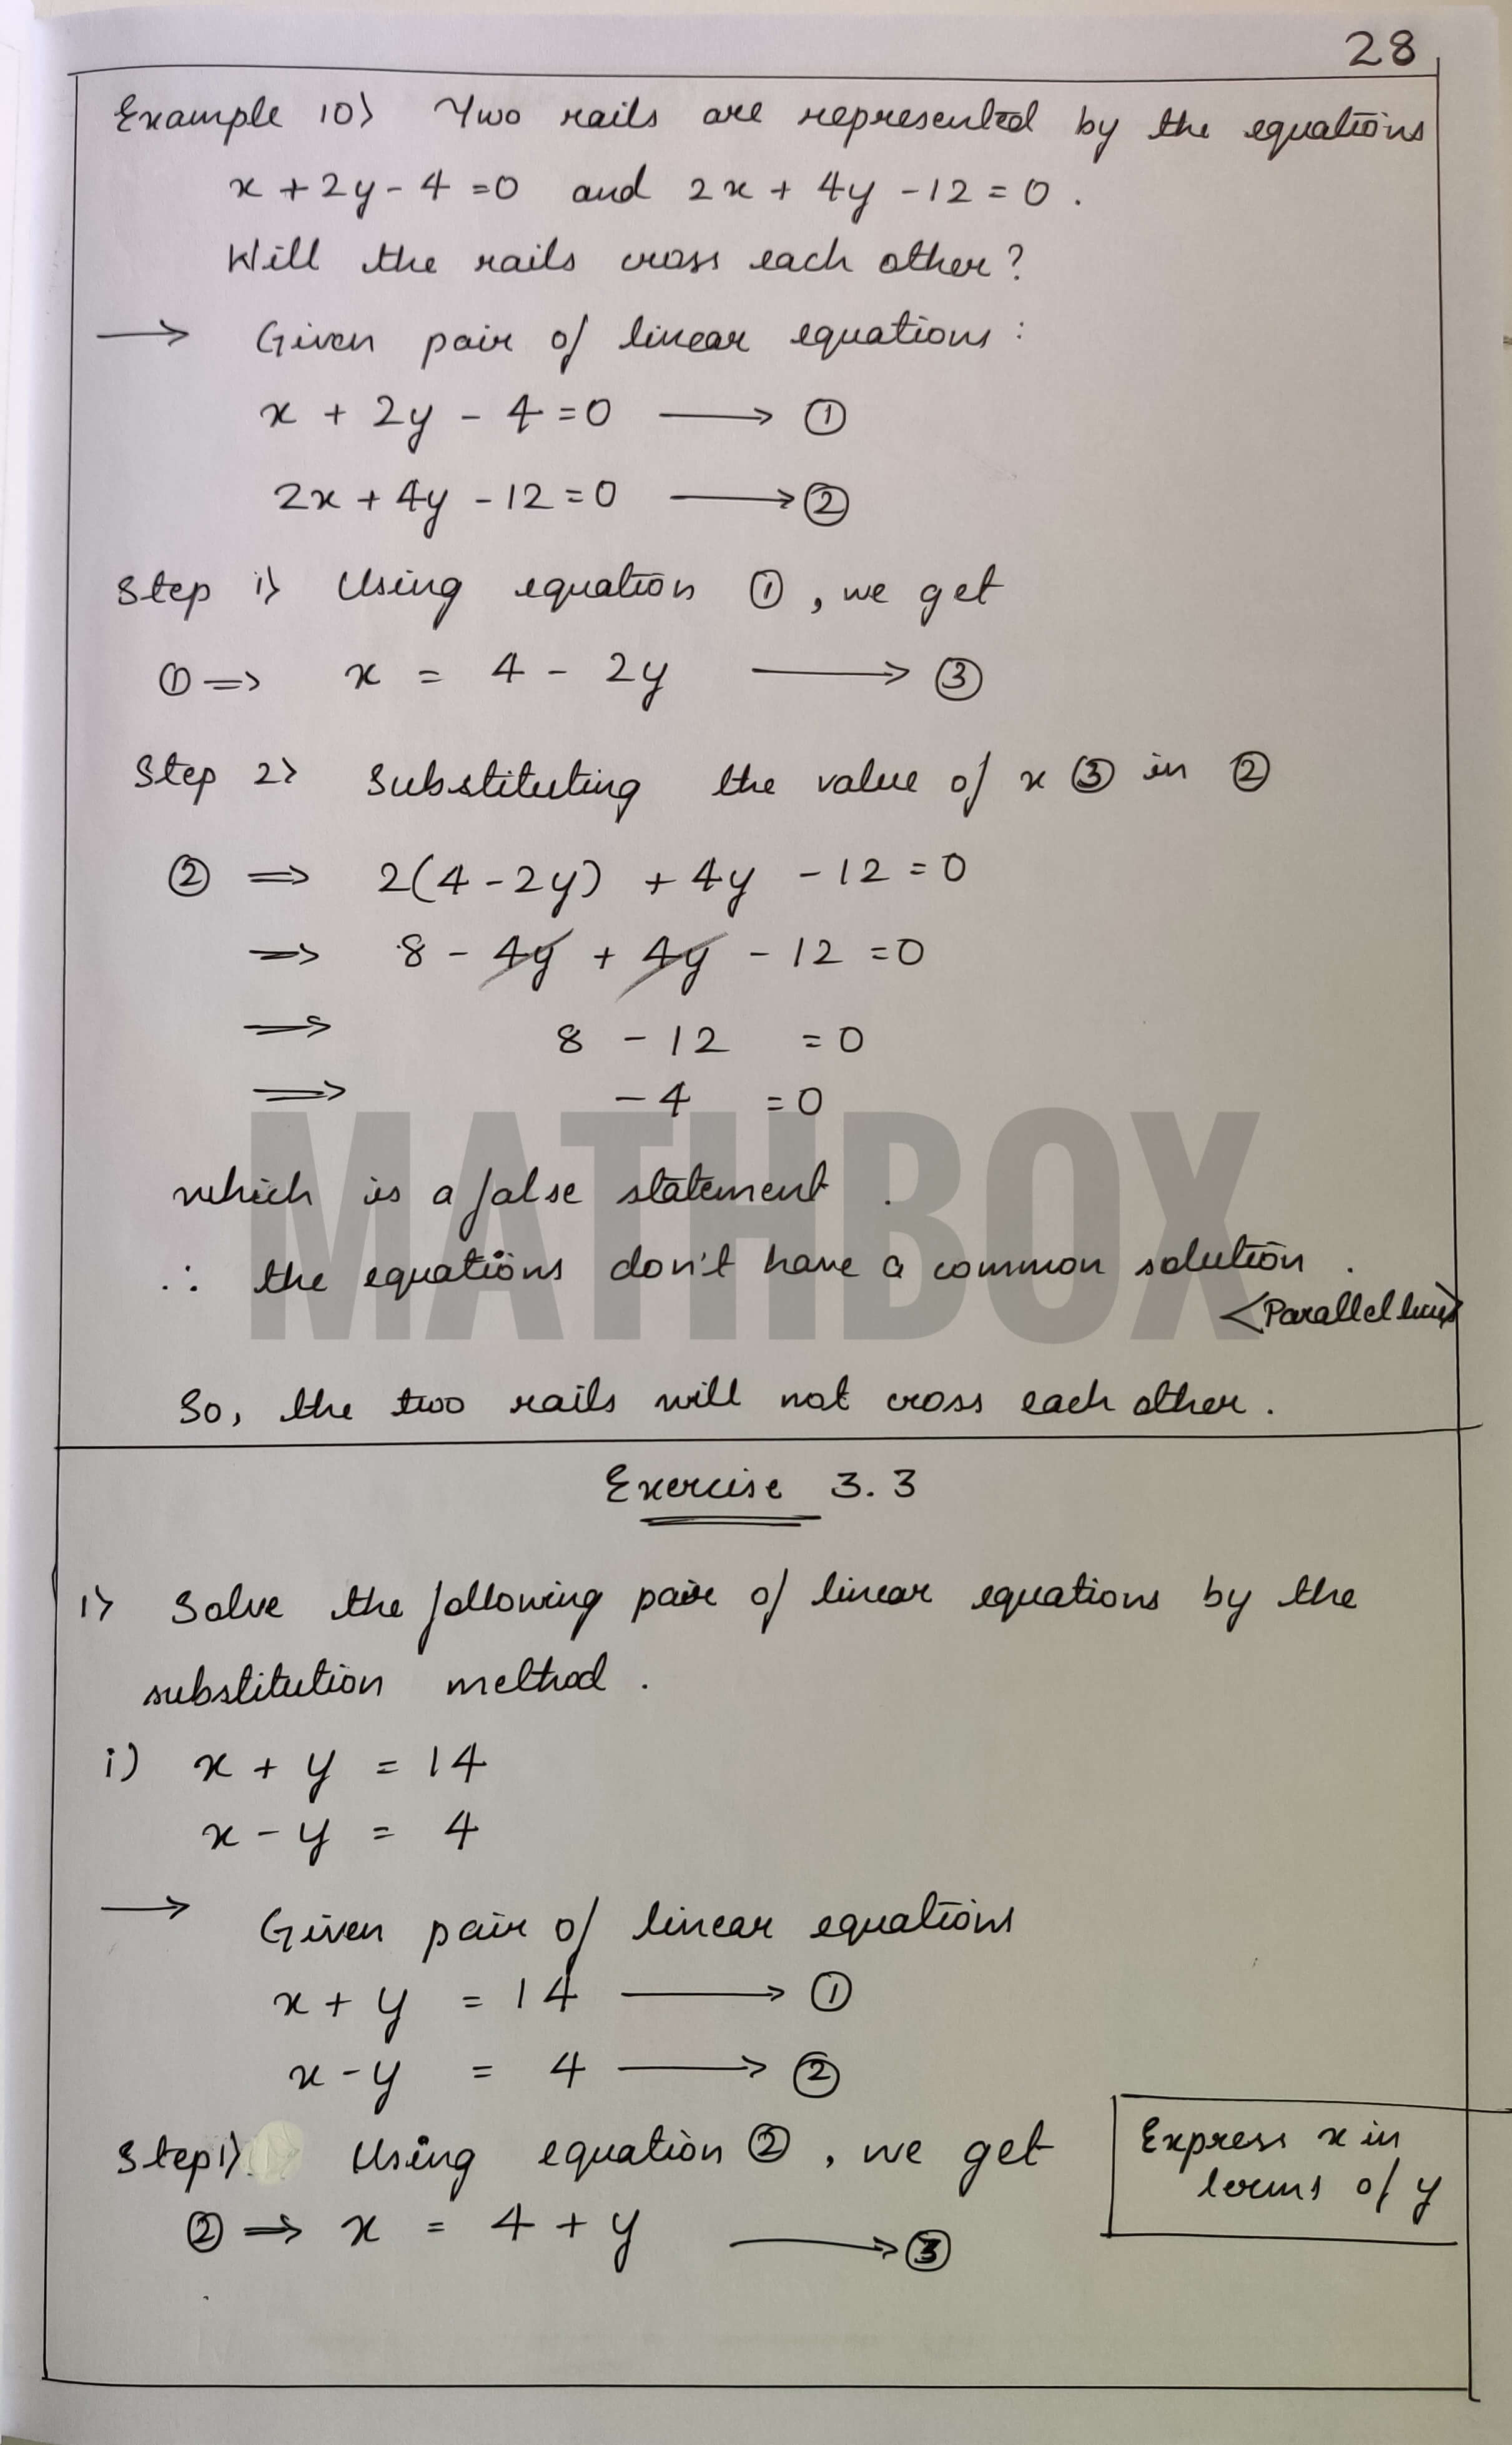 28
Example 10> Two rails are represented by the equations
x + 2y - 4 = 0 and 2x + 4y - 12 = 0.
Will the rails cross each other?
→ Given pair of linear equations:
x + 2y - 4 = 0 → ①
2x + 4y - 12 = 0 → ②
Step 1> Using equation ①, we get
① ⇒ x = 4 - 2y → ③
Step 2> Substituting the value of x ③ in ②
② ⇒ 2(4 - 2y) + 4y - 12 = 0
⇒ 8 - 4y + 4y - 12 = 0
⇒ 8 - 12 = 0
⇒ - 4 = 0
MATHBOX
which is a false statement.
∴ the equations don't have a common solution.
<Parallel lines>
So, the two rails will not cross each other.
Exercise 3.3
1> Solve the following pair of linear equations by the
substitution method.
i) x + y = 14
x - y = 4
→ Given pair of linear equations
x + y = 14 → ①
x - y = 4 → ②
Step 1> Using equation ②, we get
② ⇒ x = 4 + y → ③
Express x in
terms of y